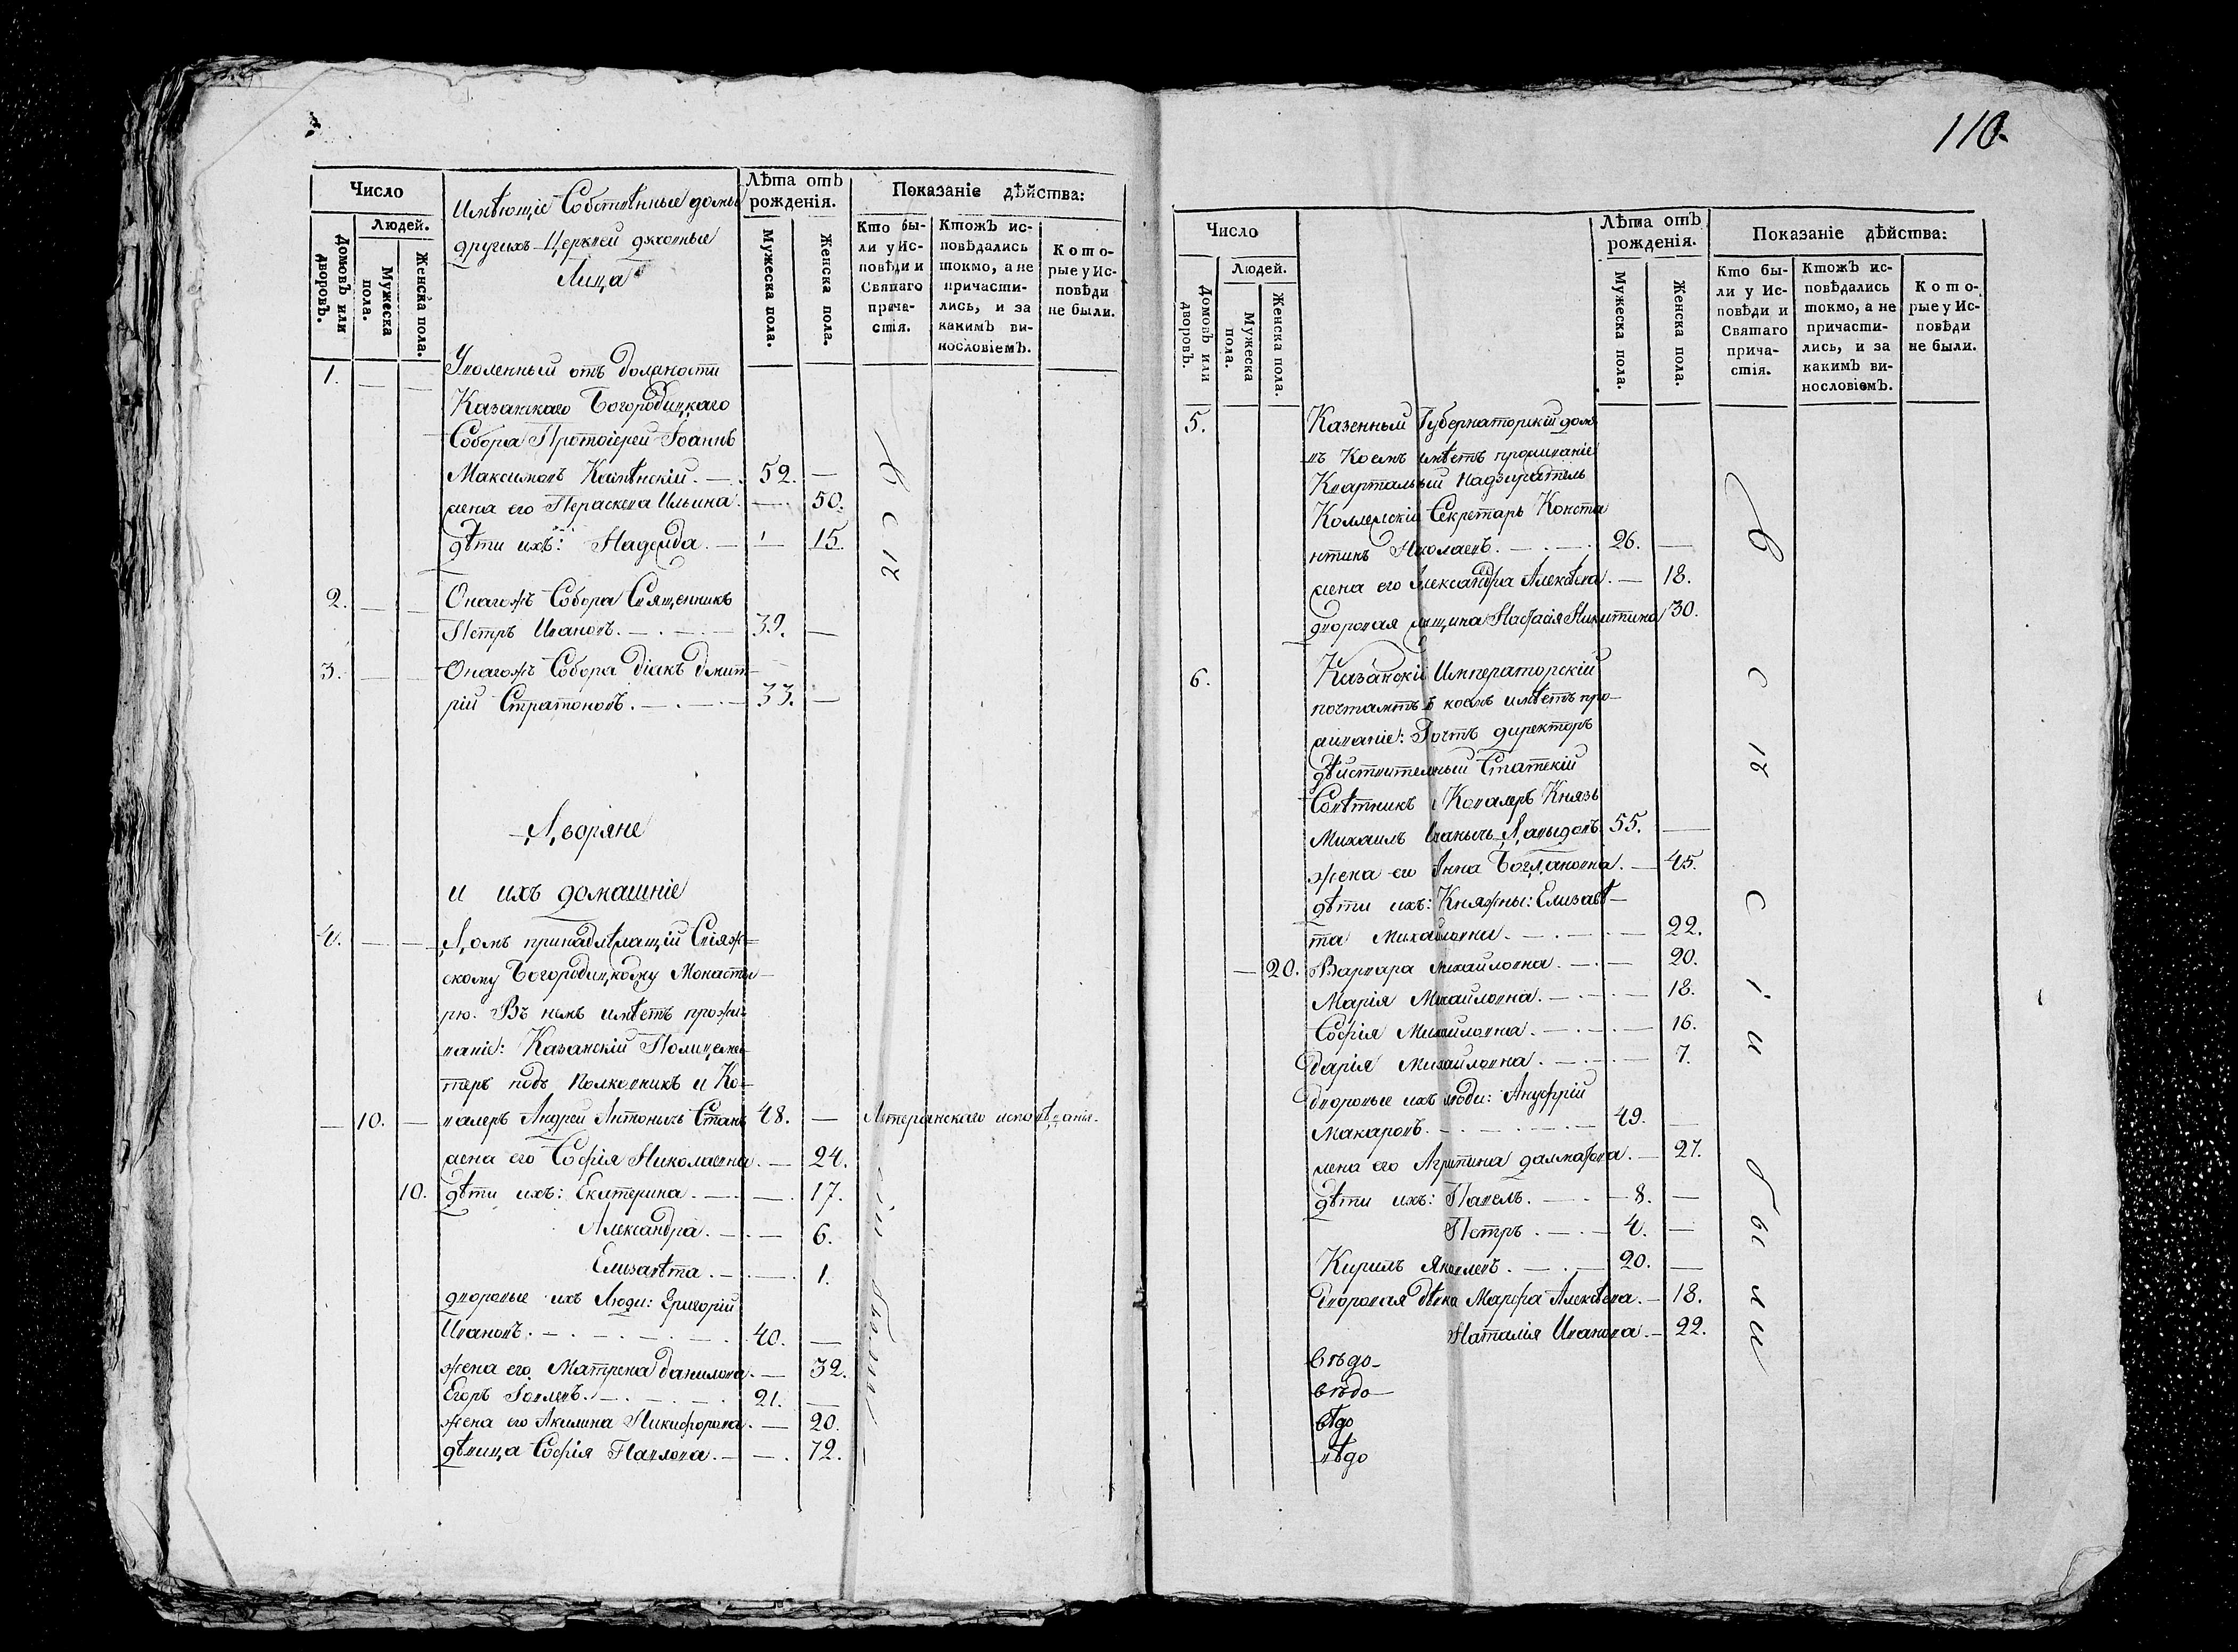 110.
Число
Людей.
Домовъ или дворовъ.
Мужеска пола.
Женска пола.
Имѣющіе Собственные домы
другихъ Церквей духовные
Лица
Лѣта отъ
рожденія.
Мужеска пола.
Женска пола.
Показаніе дѣйства:
Кто бы-
ли у Ис-
повѣди и
Святаго
прича-
стія.
Ктожъ ис-
повѣдались
токмо, а не
причасти-
лись, и за
какимъ ви-
нословіемъ.
Кото-
рые у Ис-
повѣди
не были.
1. — — Уволенный отъ должности
Казанскаго Богородицкаго
Собора Протоіерей Іоаннъ
Максимовъ 52. —
жена его Параскева Ильина. — 50.
дѣти ихъ: Надежда. — 15.
2. — — Онагожъ Собора Священникъ
Петръ Ивановъ. — 39. —
3. — — Онагожъ Собора діакъ Дмит-
рій Стратоновъ. — 33. —
Дворяне
и ихъ домашніе
4. — — Домъ принадлѣжащій Свіяж-
скому Богородицкому Монасты-
рю. Въ немъ имѣетъ прожи-
ваніе: Казанскій Полицеме-
теръ подъ Полковникъ и Ка-
— 10. — валеръ Андрей Антонычь 48. — Лютеранскаго исповѣданія.
жена его Софія Николаевна. — 24.
10. дѣти ихъ: Екатерина. — 17.
Александра. — 6.
Елизавѣта. — 1.
дворовые ихъ Люди: Григорій
Ивановъ. — 40. —
жена его Матрена Данилова. — 32.
Егоръ Іовлевъ. — 21. —
жена его Акилина Никифорова. — 20.
дѣвица Софія Павлова. — 72.
Число
Людей.
Домовъ или дворовъ.
Мужеска пола.
Женска пола.
Лѣта отъ
рожденія.
Мужеска пола.
Женска пола.
Показаніе дѣйства:
Кто бы-
ли у Ис-
повѣди и
Святаго
прича-
стія.
Ктожъ ис-
повѣдались
токмо, а не
причасти-
лись, и за
какимъ ви-
нословіемъ.
Кото-
рые у Ис-
повѣди
не были.
5. Казенный Губернаторскій домъ
въ Коемъ имѣетъ проживаніе
Квартальный Надзиратель
Коллежскій Секретарь Конста
нтинъ Николаевъ. — 26. —
жена его Александра Алексѣева. — 18.
дворовая Настасія Никитина 30.
6. Казанскій Императорскій
почтамтъ в коемъ имѣетъ про-
живаніе: Почтъ директоръ
дѣйствительный Статскій
Совѣтникъ и Кавалеръ Князь
Михаилъ Иванычь Давыдовъ. 55. —
жена его Анна Богдановна. — 45.
дѣти ихъ: Княжны: Елизавѣ-
та Михайловна. — 22.
— 20. Варвара Михайловна. — 20.
Марія Михайловна. — 18.
Софія Михайловна. — 16.
Дарія Михайловна. — 7.
дворовые ихъ люди: Ануфрій
Макаровъ. — 49. —
жена его Агрипина Далматова. — 27.
дѣти ихъ: Павелъ. — 8. —
Петръ. — 4. —
Кирилъ Яковлевъ. — 20. —
Дворовая дѣвка Марфа Алексѣева. — 18.
Наталія Иванова. — 22.
В с и с і и были